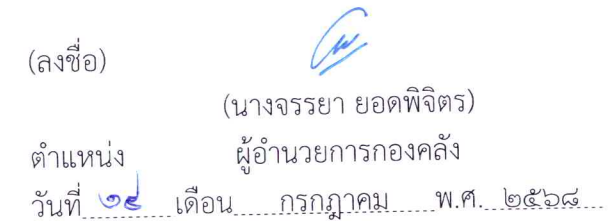 (ลงชื่อ)
(นางจรรยา ยอดพิจิตร)
ตำแหน่ง ผู้อำนวยการกองคลัง
วันที่ ๑๕ เดือน กรกฎาคม พ.ศ. ๒๕๖๘